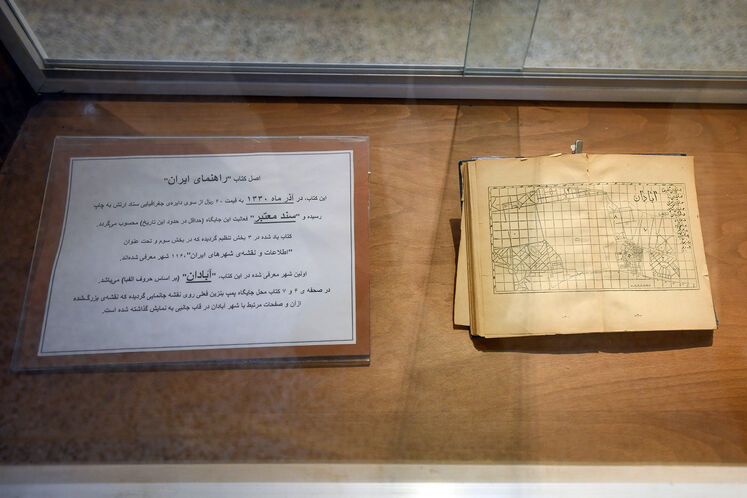 اصل کتاب "راهنمای ایران"
این کتاب، در آذر ماه ۱۳۳۰ به قیمت ۶۰ ریال از سوی دایره‌ی جغرافیایی ستاد ارتش به چاپ
رسیده و "سند معتبر" فعالیت این جایگاه (حداقل در حدود این تاریخ) محسوب می‌گردد.
کتاب یاد شده در ۳ بخش تنظیم گردیده که در بخش سوم و تحت عنوان
"اطلاعات و نقشه‌ی شهرهای ایران"، ۱۱۲ شهر معرفی شده‌اند.
اولین شهر معرفی شده در این کتاب، "آبادان" (بر اساس حروف الفبا) می‌باشد.
در صفحه ی ۶ و ۷ کتاب محل جایگاه پمپ بنزین فعلی روی نقشه جانمایی گردیده که نقشه‌ی بزرگ‌شده
ازآن و صفحات مرتبط با شهر آبادان در قاب جانبی به نمایش گذاشته شده است.
آبادان